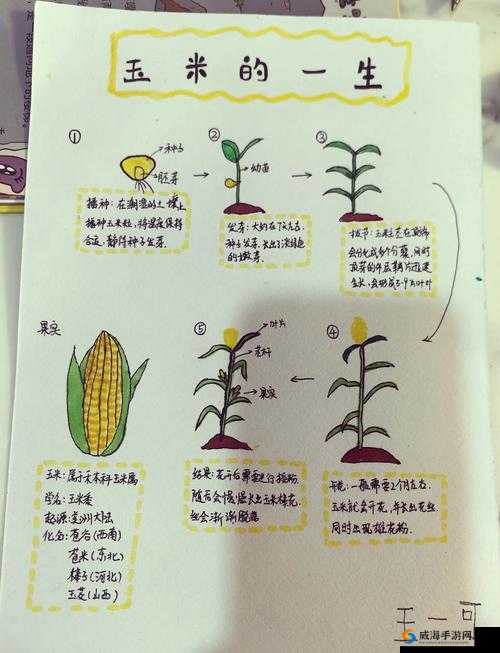 玉米的一生
①
种子
胚芽
播种：在潮湿的土壤上
播种玉米粒，将温度保持
合适，静待种子发芽。
②
幼苗
发芽：大约在7天左右，
种子发芽，长出了淡绿色
的嫩芽。
③
拔节：玉米主茎在顶端
会分化成多个分蘖，同时
生长，会形成5-9片叶片
④
开花：一般需要2个月左右，
玉米就会开花，并长出花丝，
同时出现雄花粉。
⑤
叶片
茎秆
果实
结果：花开后需要进行授粉，
随后会慢慢长出玉米棒花，
也会渐渐脱落
果实
玉米：属于禾本科玉蜀属
学名：玉米黍
起源：美洲大陆
化名：苞谷（西南）
苞米（东北）
棒子（河北）
玉茭（山西）
王一可
威海手游网